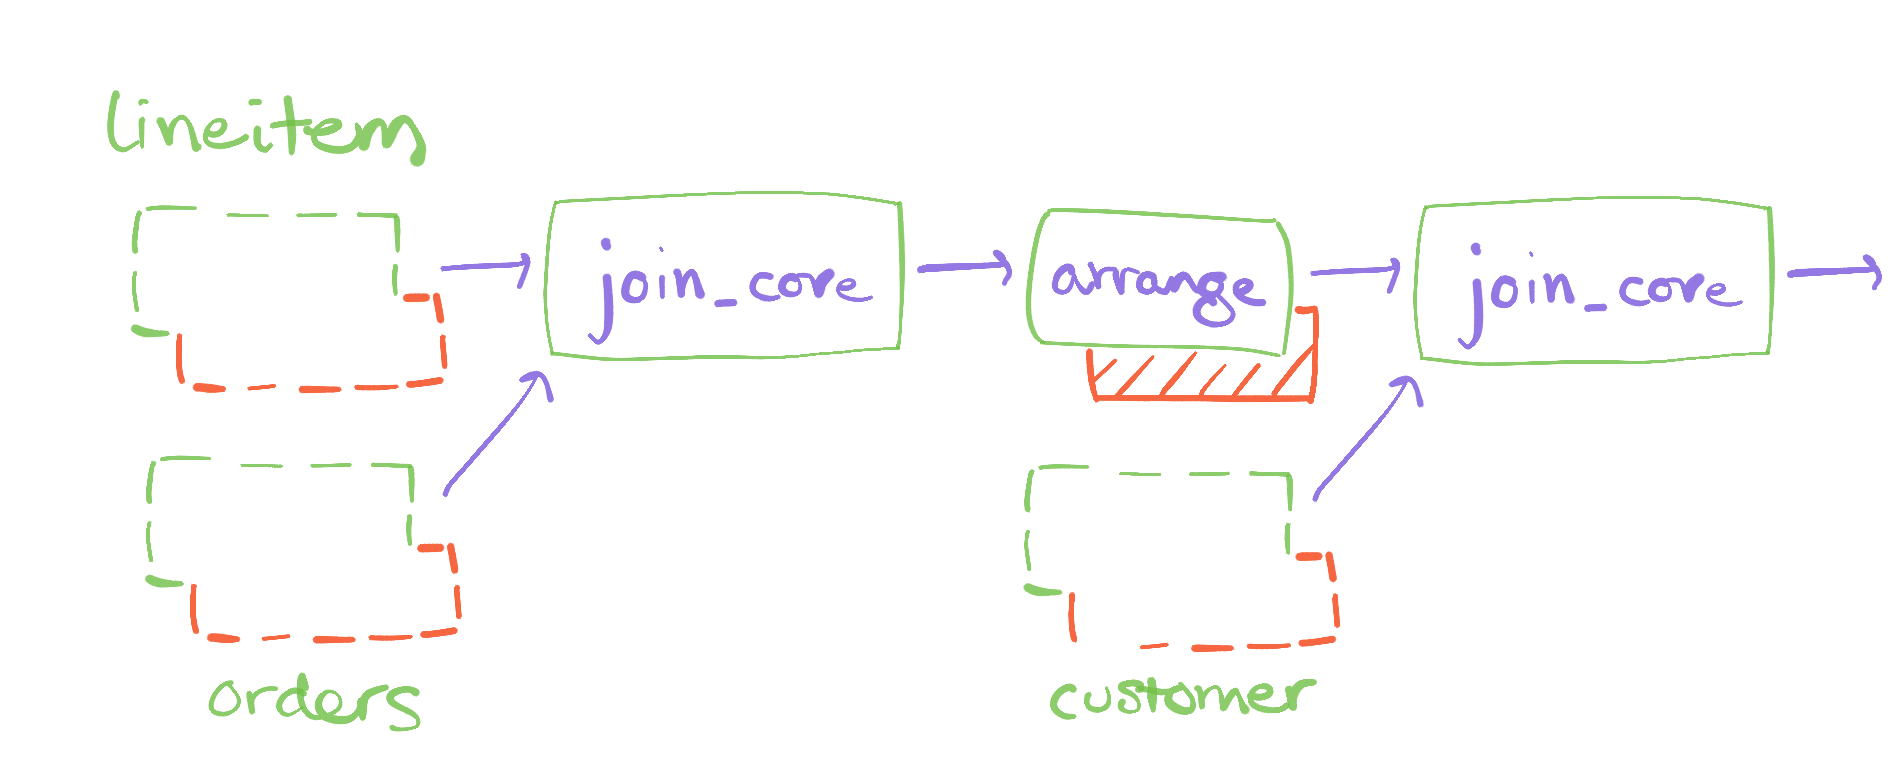 lineitem
join_core
arrange
join_core
orders
customer